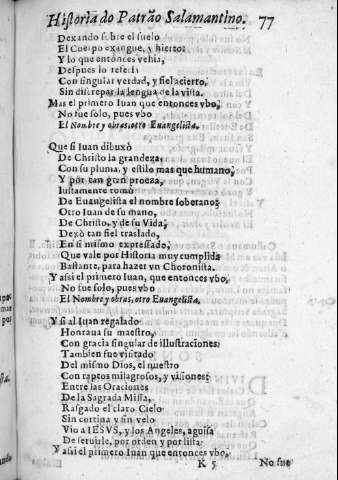 Historia do Patrão Salamantino. 77
Dexando sobre el suelo
El Cuerpo exangue, y hierto:
Y lo que entonces vehia,
Despues lo refería
Con singular verdad, y fiel acierto,
Sin discrepar la lengua de la vista.
Mas el primero Iuan que entonces vbo,
No fue solo, pues vbo
El Nombre y obras, otro Euangelista.
Que si Iuan dibuxò
De Christo la grandeza;
Con su pluma, y estilo mas que humano,
Y por tan gran proeza,
Iustamente tomò
De Euangelista el nombre soberano:
Otro Iuan de su mano,
De Christo, y de su Vida,
Dexò tan fiel traslado,
En si mismo expressado,
Que vale por Historia muy cumplida
Bastante, para hazer vn Choronista.
Y assi el primero Iuan, que entonces vbo,
No fue solo, pues vbo
El Nombre y obras, otro Euangelista.
Y si al Iuan regalado
Honraua su maestro,
Con gracia singular de illustraciones:
Tambien fue visitado
Del mismo Dios, el nuestro
Con raptos milagrosos, y visiones:
Entre las Oraciones
De la Sagrada Missa,
Rasgado el claro Cielo
Sin cortina y sin velo
Vio a IESVS, y los Angeles, a guisa
De seruirle, por orden y por lista:
Y assi el primero Iuan que entonces vbo,
K 5 No fue